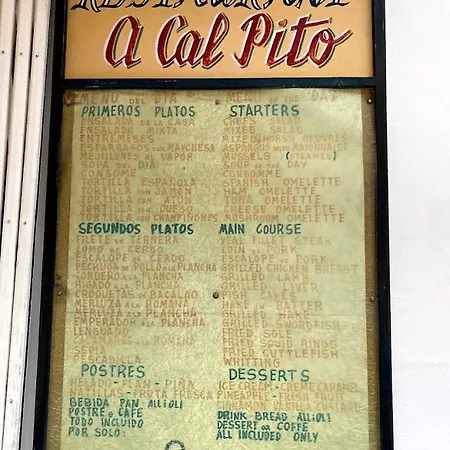 RESTAURANT
A Cal Pito
MENU DEL DIA
PRIMEROS PLATOS
ENSALADA DE LA CASA
ENSALADA MIXTA
ENTREMESES
ESPARRAGOS CON MAYONESA
MEJILLONES AL VAPOR
SOPA DEL DIA
CONSOME
TORTILLA ESPAÑOLA
TORTILLA CON JAMON
TORTILLA CON ATUN
TORTILLA CON QUESO
TORTILLA CON CHAMPIÑONES
SEGUNDOS PLATOS
FILETE DE TERNERA
LOMO DE CERDO
ESCALOPE DE CERDO
PECHUGA DE POLLO A LA PLANCHA
CORDERO A LA PLANCHA
HIGADO A LA PLANCHA
CROQUETAS DE BACALAO
MERLUZA A LA ROMANA
MERLUZA A LA PLANCHA
EMPERADOR A LA PLANCHA
LENGUADO
CALAMARES A LA ROMANA
SEPIA
PESCADILLA
POSTRES
HELADO-FLAN-PIÑA
NATILLAS-FRUTA FRESCA
BEBIDA PAN ALLIOLI
POSTRE O CAFE
TODO INCLUIDO
POR SOLO:
MENU OF THE DAY
STARTERS
CHEFS
MIXED SALAD
MIXED HORS OEUVRES
ASPARGUS WITH MAYONNAISE
MUSSELS (STEAMED)
SOUP OF THE DAY
CONSOMME
SPANISH OMELETTE
HAM OMELETTE
TUNA OMELETTE
CHEESE OMELETTE
MUSHROOM OMELETTE
MAIN COURSE
VEAL FILLET STEAK
LOIN OF PORK
ESCALOPE OF PORK
GRILLED CHICKEN BREAST
GRILLED LAMB
GRILLED LIVER
FISH CAKES
HAKE IN BATTER
GRILLED HAKE
GRILLED SWORDFISH
FRIED SOLE
FRIED SQUID RINGS
FRIED CUTTLEFISH
WHITTING
DESSERTS
ICE CREAM-CREME CARAMEL
PINEAPPLE-FRESH FRUIT
CUSTARD
DRINK BREAD ALLIOLI
DESSERT OR COFFE
ALL INCLUDED ONLY